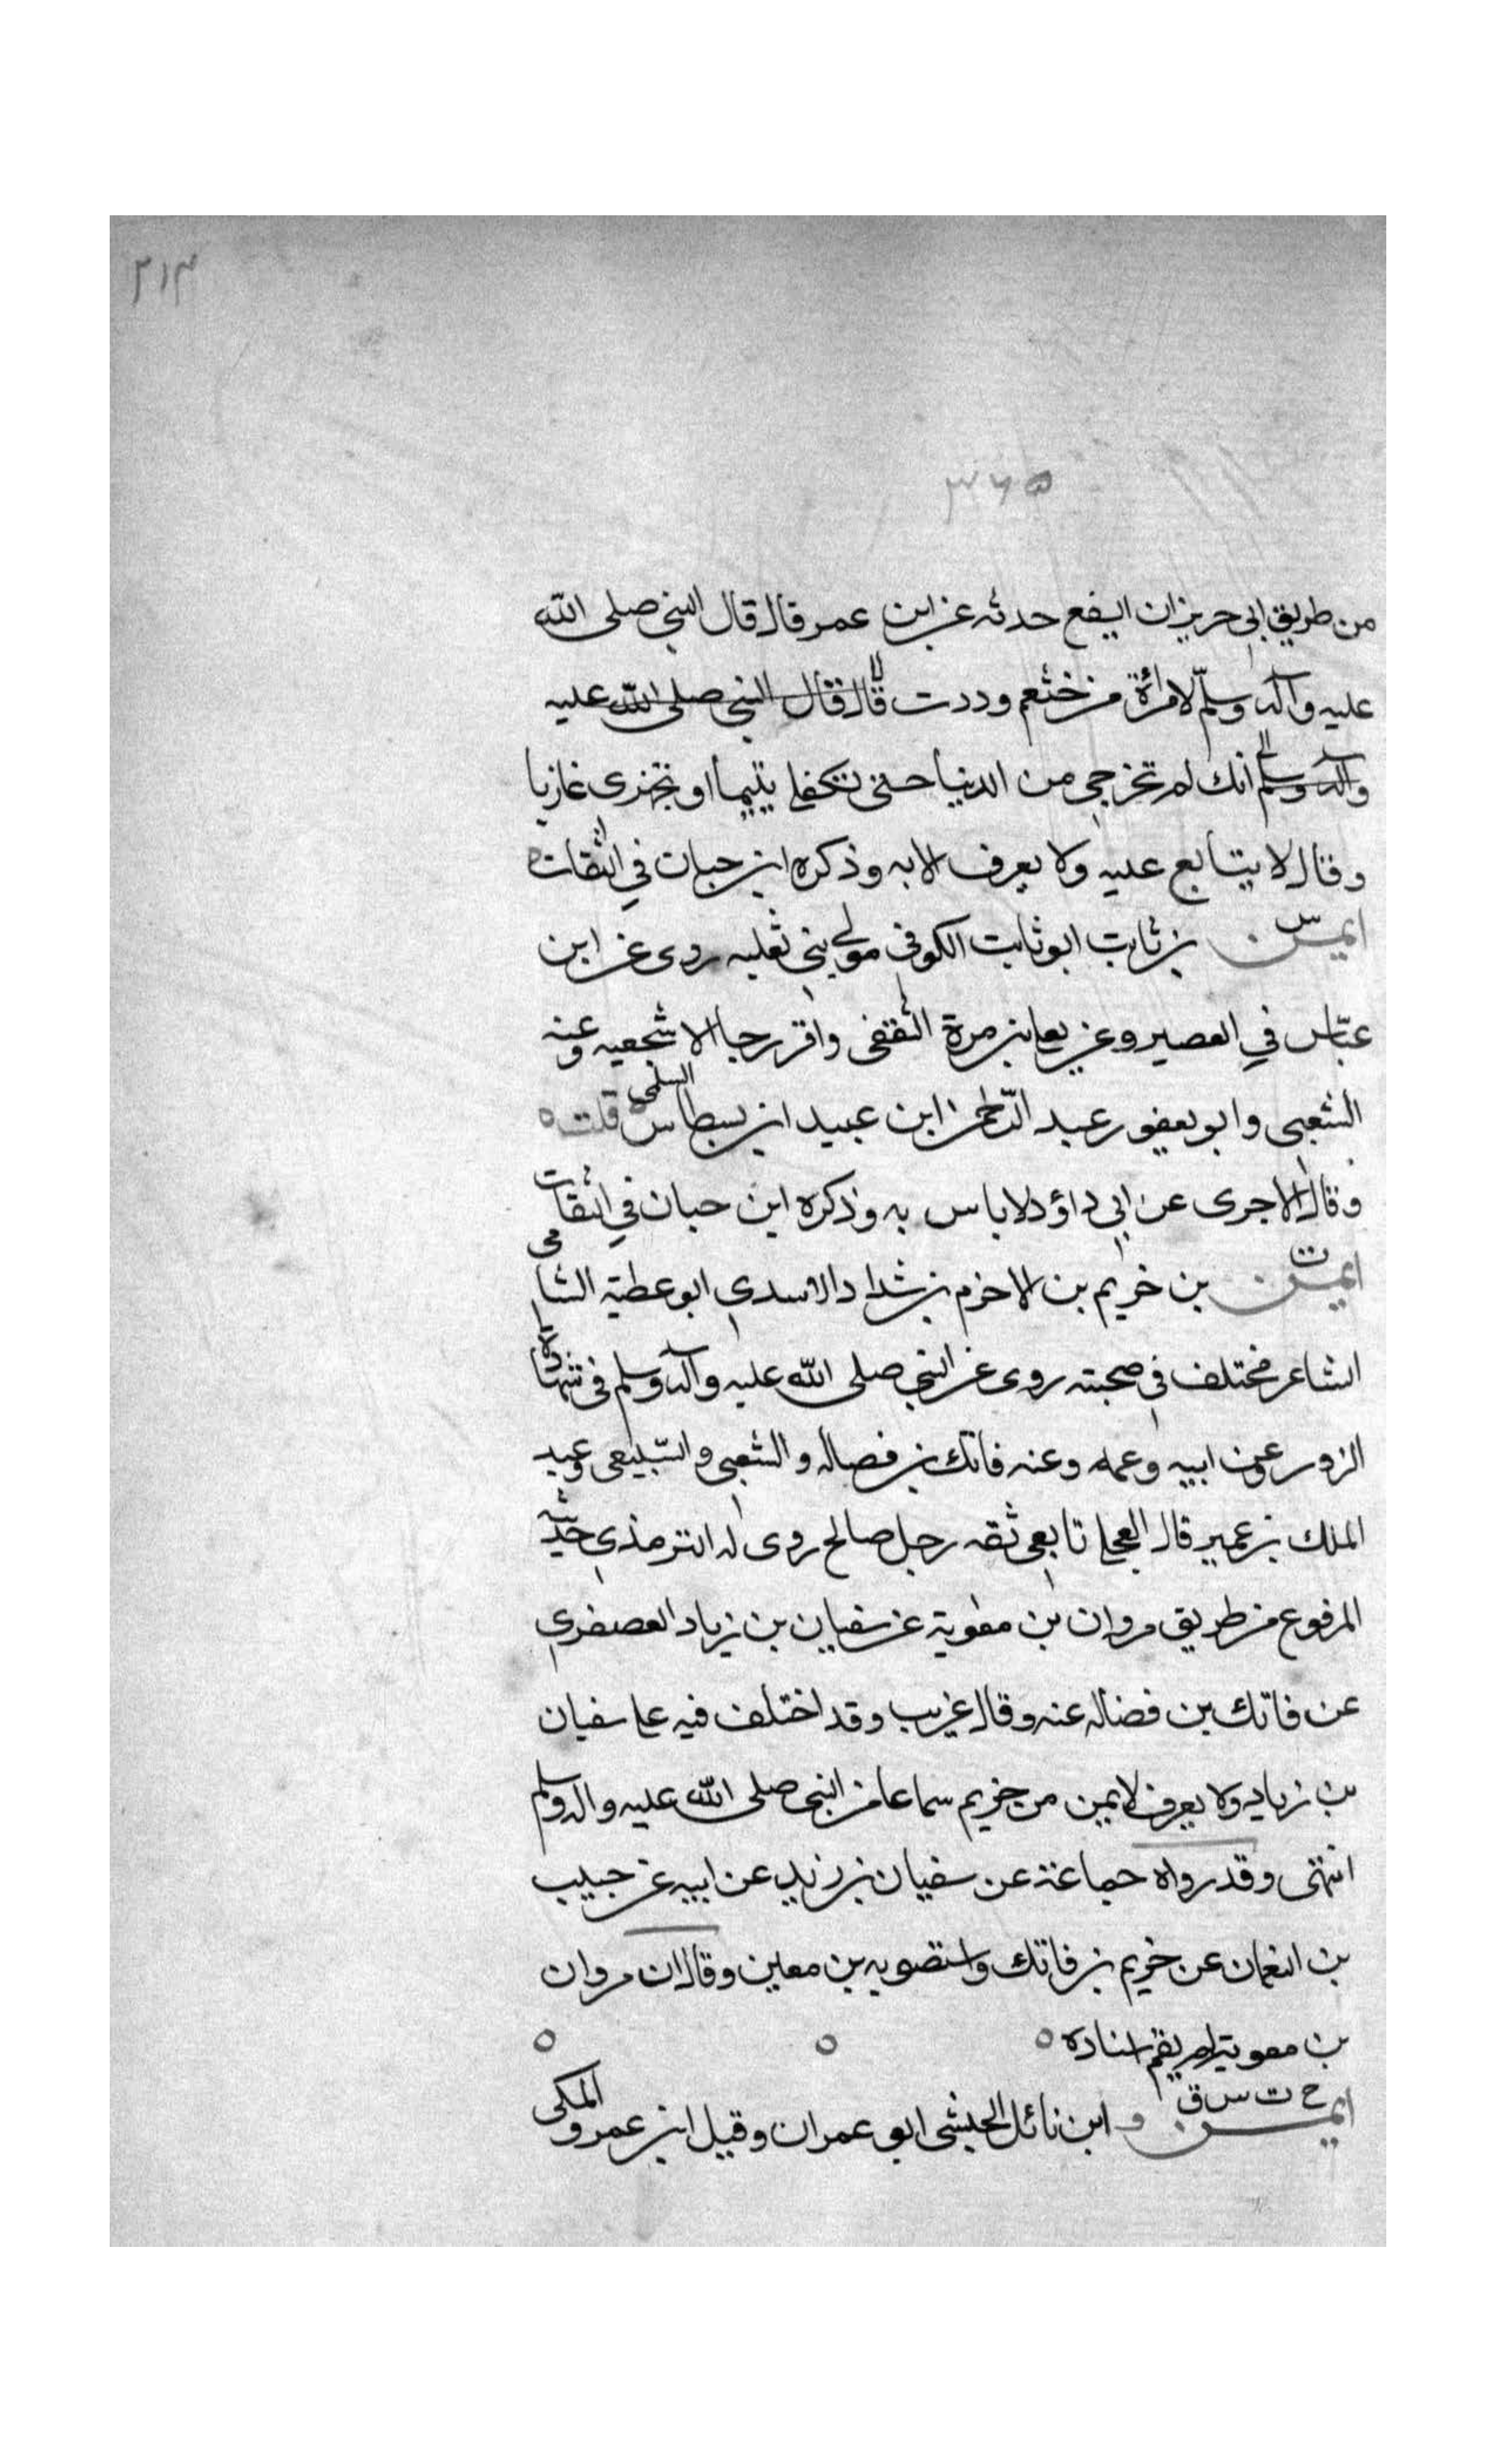 ٢١٣
٣٦٥
من طريق ابي حريز ان ايفع حدثه عن ابن عمر قال قال النبي صلى الله
عليه وآله وسلم لامرأة من خثعم وددت قال قال النبي صلى الله عليه
وآله وسلم انك لم تخرجي من الدنيا حتى تكفلي يتيما او تجهزى غازيا
وقال لا يتابع عليه ولا يعرف الا به وذكره ابن حبان في الثقات
ايمن س بن ثابت ابو ثابت الكوفي مولى بني ثعلبه روى عن ابن
عباس في العصير وعن يعلى بن مرة الثقفى وعنه
الشعبى وابو يعفور عبد الرحمن ابن عبيد ابن بسطاس السلمى قلت ه
وقال الاجرى عن ابي داؤد لا باس به وذكره ابن حبان في الثقات
ايمن ت بن خريم بن الاخزم بن شداد الاسدي ابو عطية الشامى
الشاعر مختلف في صحبته روى عن النبي صلى الله عليه وآله وسلم في شهادة
الزور وعن ابيه وعمه وعنه فاتك بن فصاله والشعبى والسبيعى وعبد
الملك بن عمير قال العجلي تابعى ثقه رجل صالح روى له الترمذي حديثه
المرفوع من طريق مروان بن معوية عن سفيان بن زياد العصفري
عن فاتك بن فضاله عنه وقال غريب وقد اختلف فيه على سفيان
بن زياد ولا يعرف لايمن من خريم سماعا من النبي صلى الله عليه واله وسلم
انتهى وقد رواه جماعة عن سفيان بن زيد عن ابيه عن حبيب
بن النعمان عن خريم بن فاتك واستصوبه بن معين وقال ان مروان
بن معوية لم يقم اسناده ه ه ه
ايمن خ ت س ق ابن نائل الحبشى ابو عمران وقيل ابن عمرو المكى